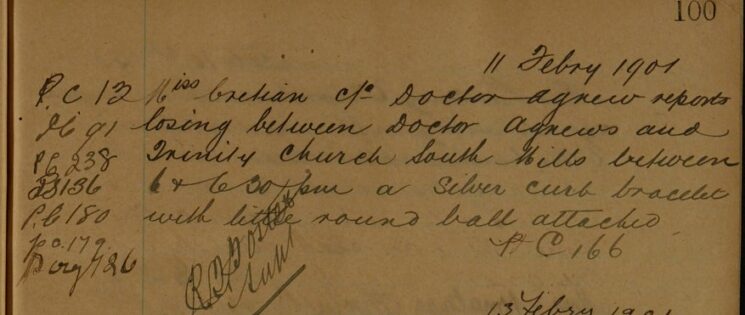 100
11 Febry 1901
P.C 12 Miss Cretian c/o Doctor Agnew reports
P.C 91 losing between Doctor Agnews and
P.C 238 Trinity Church South Mills between
136 6 & 6 30 pm a Silver curb bracelet
P.C 180 with little round ball attached
P.C. 179. P C 166
126
13 Febry 1901